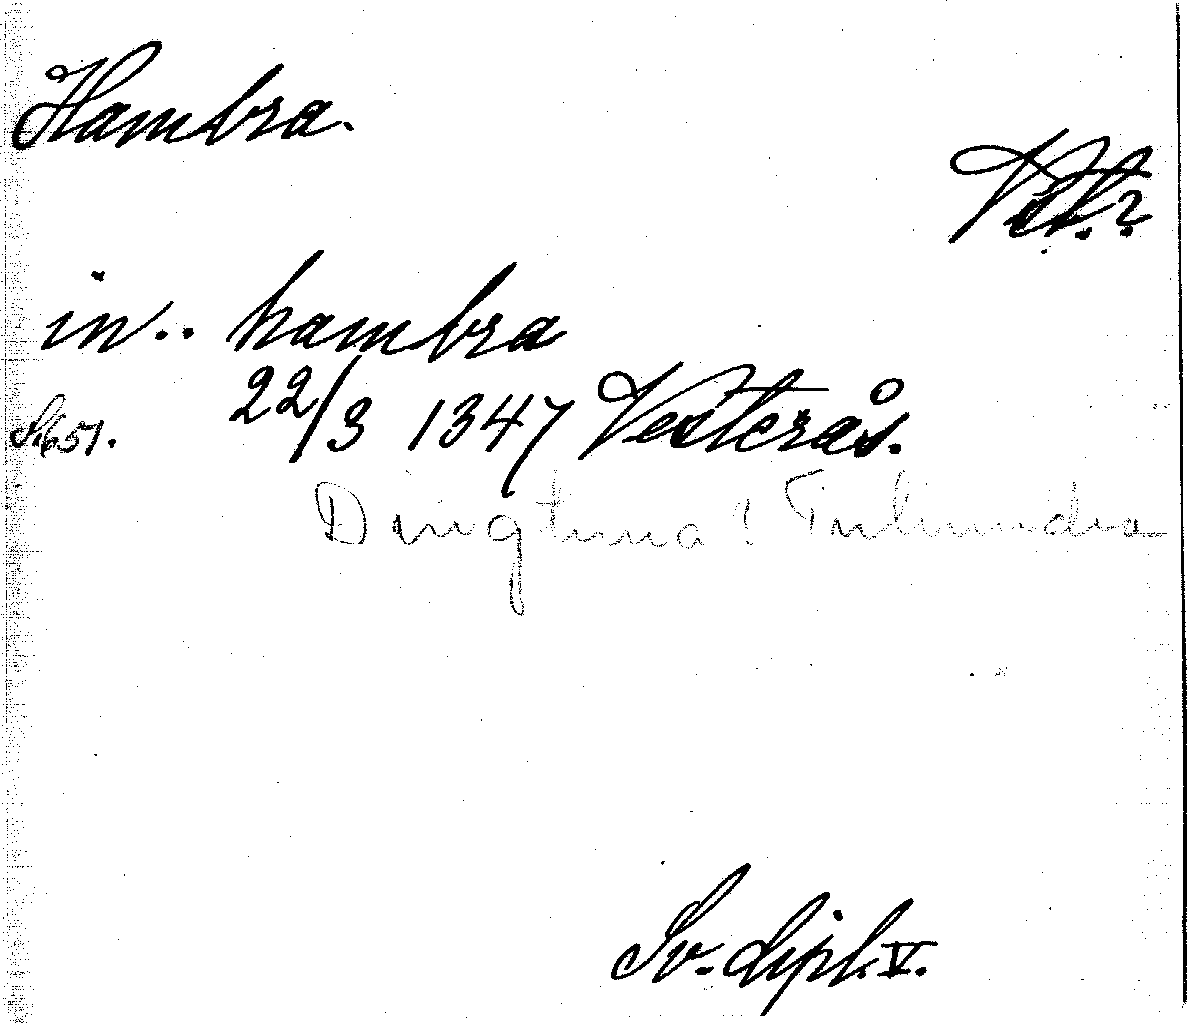 Hambra.
Vstl.?
in.. hambra
S.651. 22/3 1347 Vesterås.
Dingtuna! Tuhundra
Sv. dipl. V.